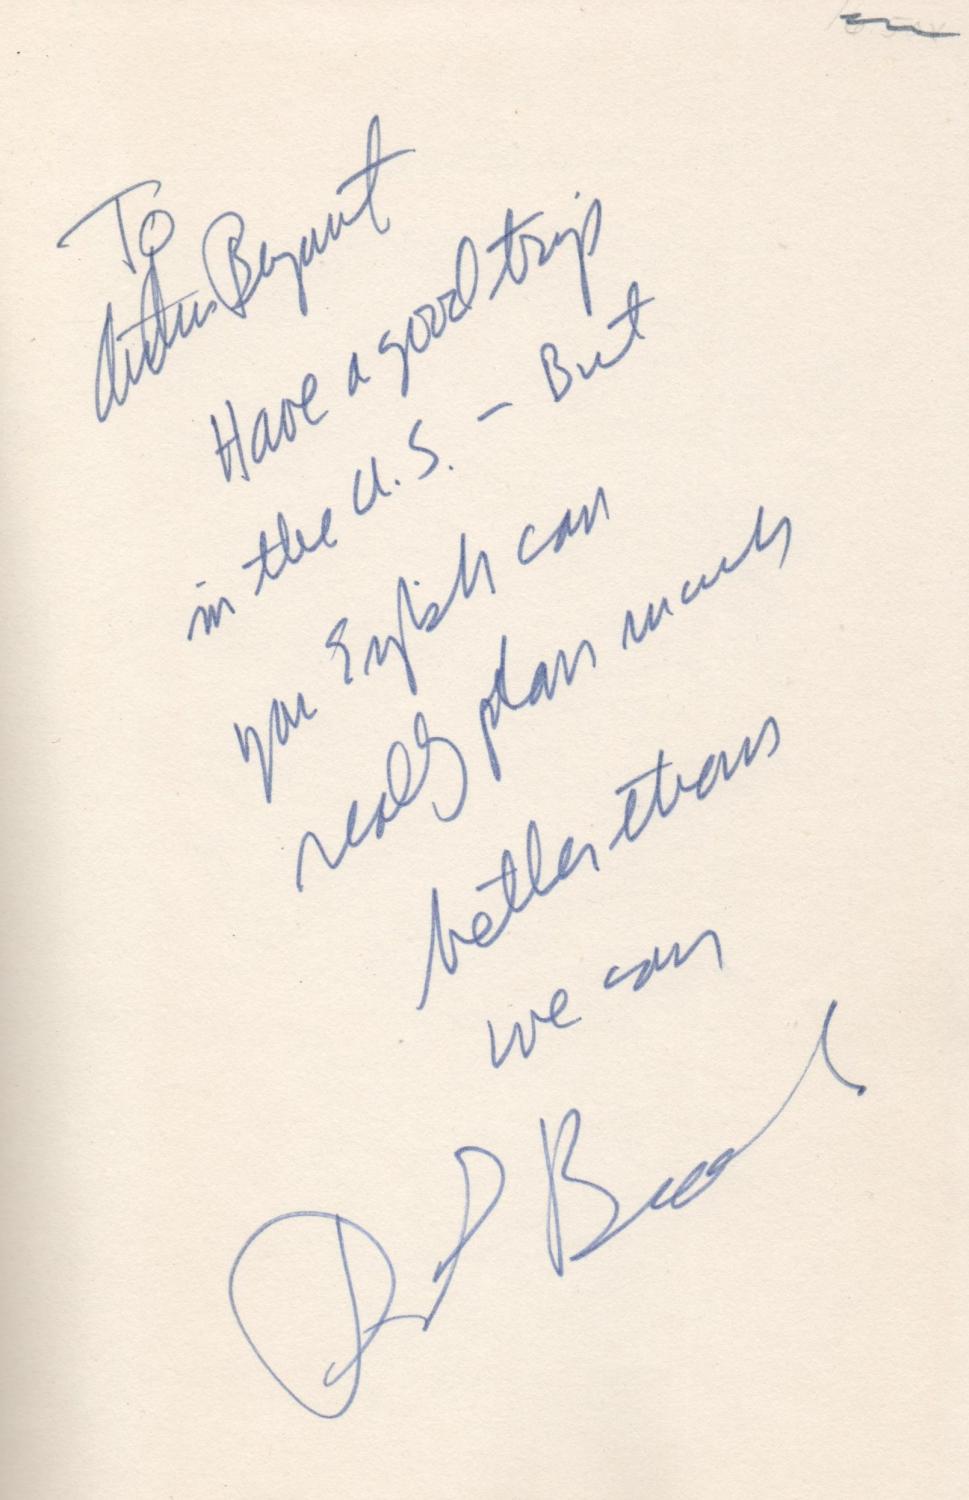 To
Arthur Bryant
Have a good trip
in the U.S. – But
you English can
really plan much
better than
we can